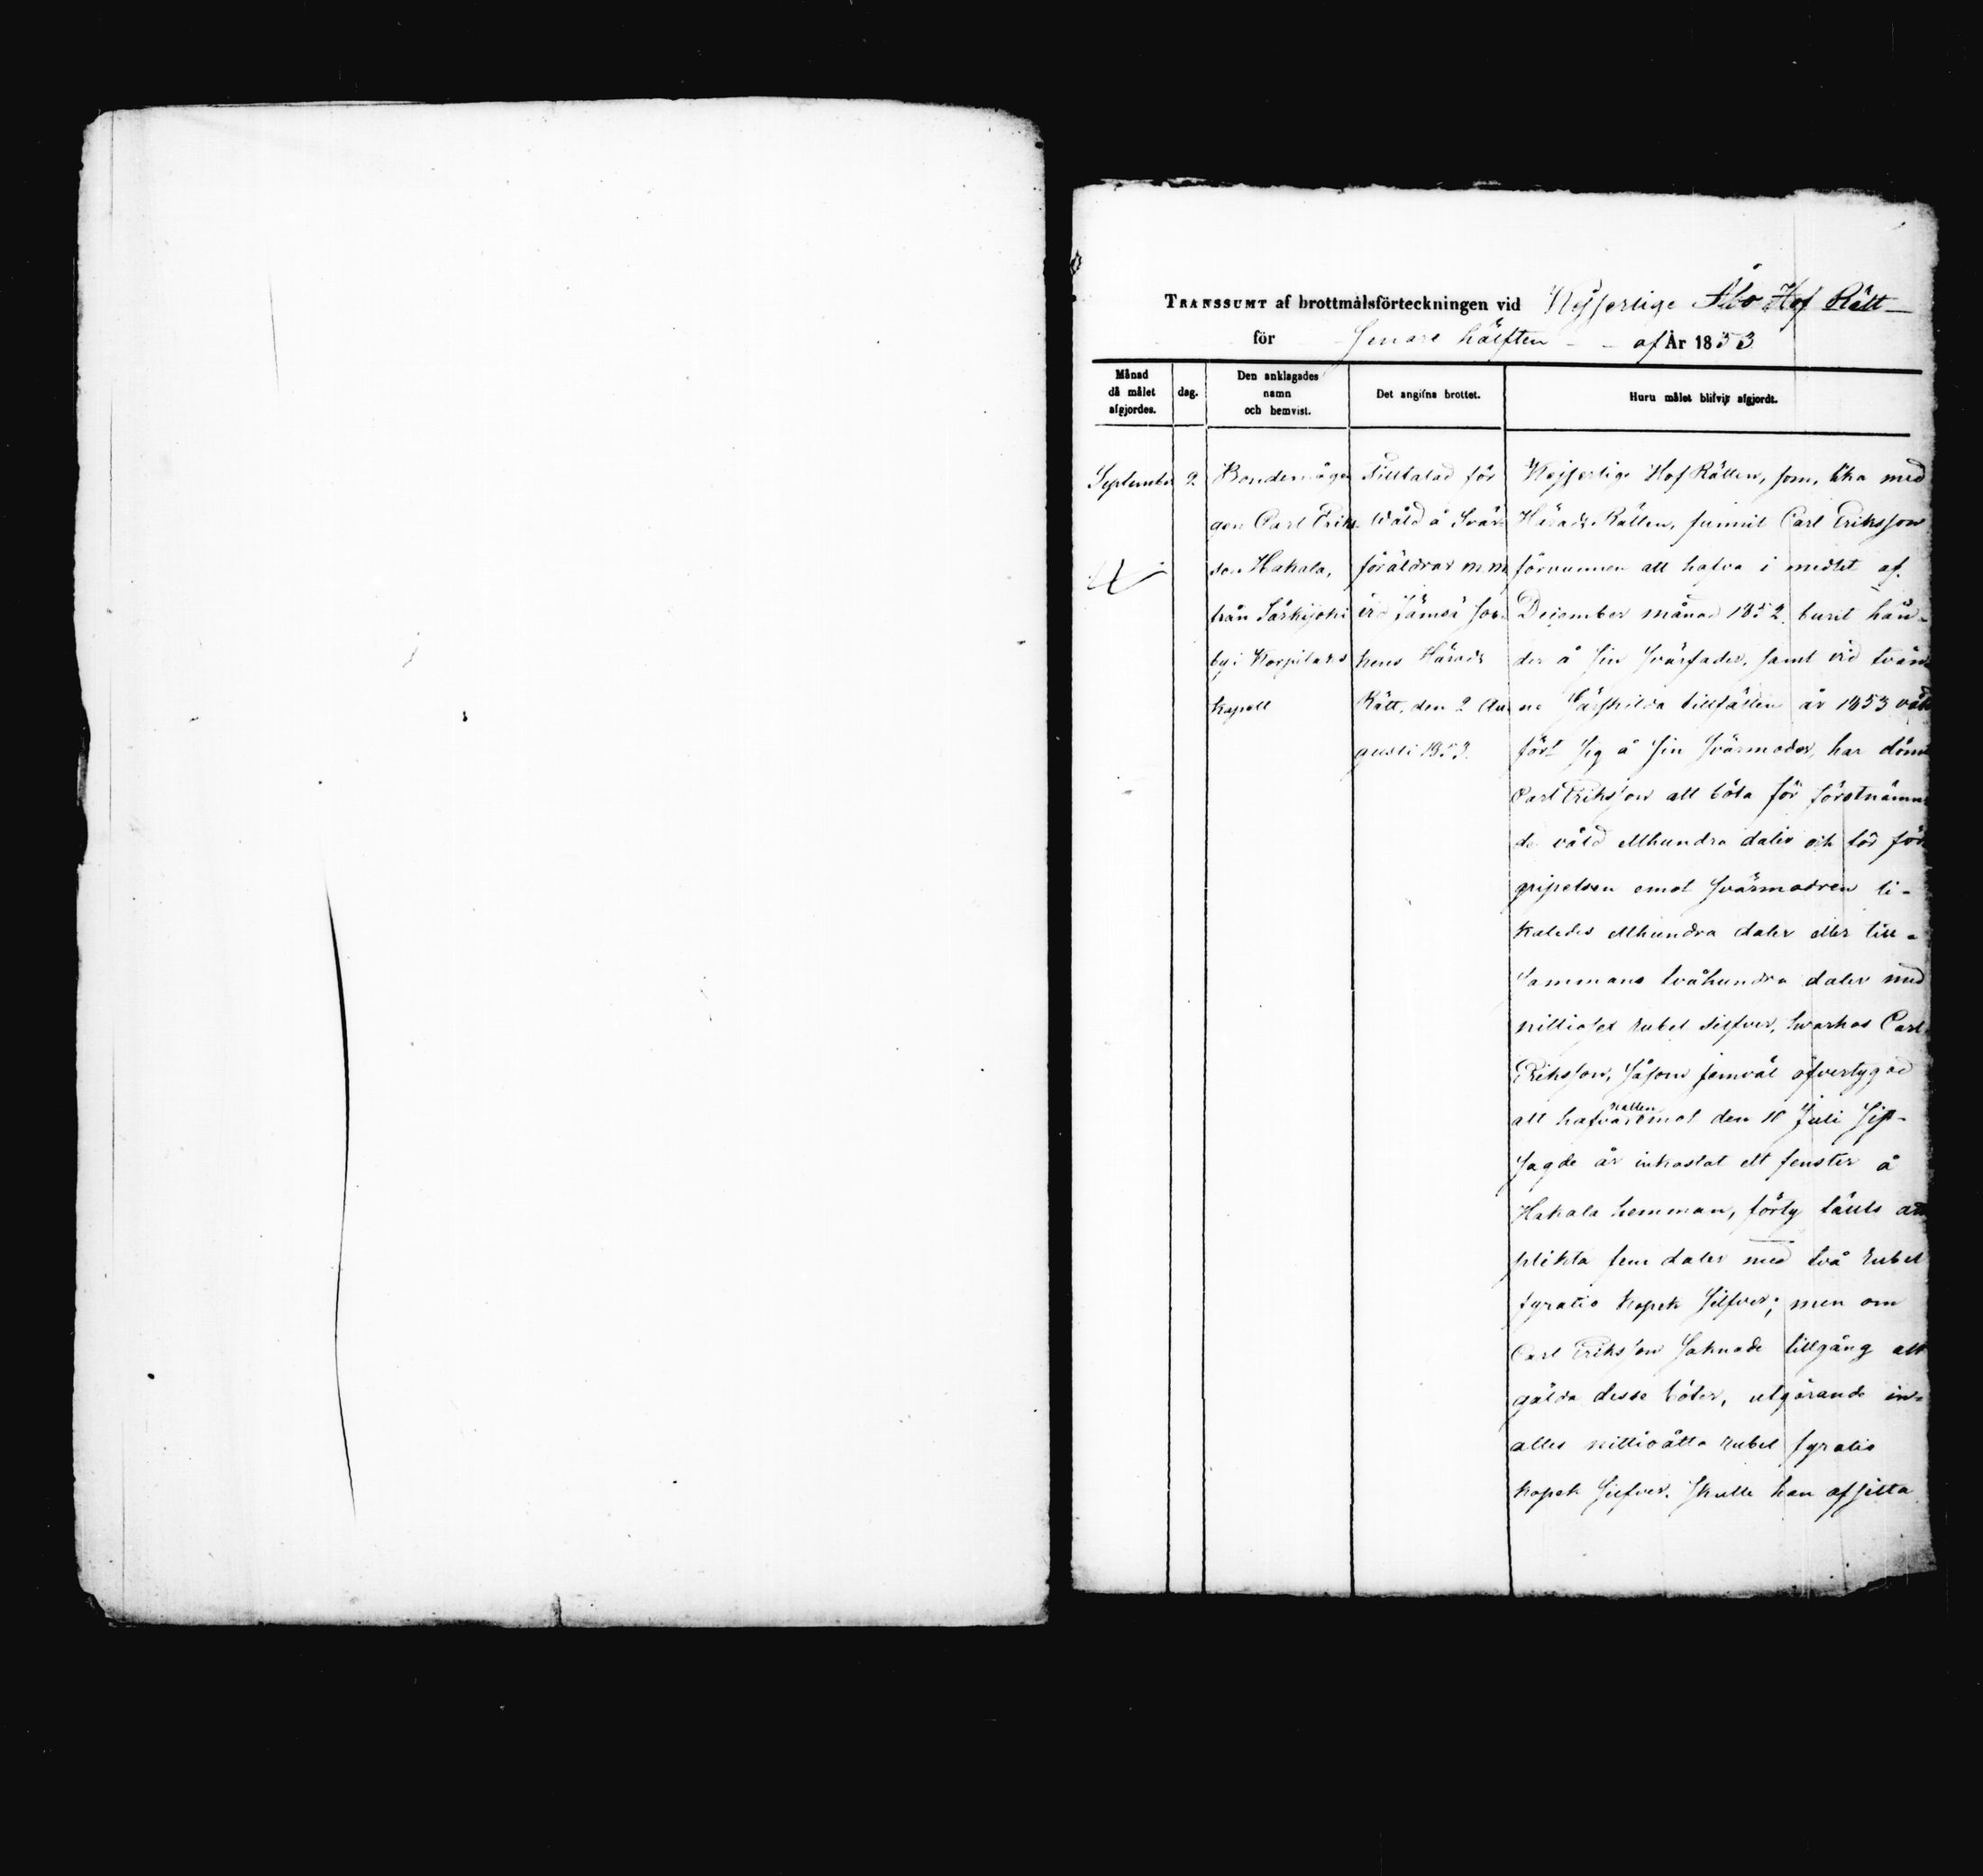 TRANSSUMT af brottmålsförteckningen vid Kejserlige Åbo Hof Rätt
för Senare hälften af År 1853
Månad
då målet
afgjordes.
dag.
Den anklagades
namn
och hemvist.
Det angifna brottet.
Huru målet blifvit afgjordt.
September
2
Bondemågen
gen Carl Eriks-
son Hakala,
från Särkijoki
by i Korpilaks
kapell
Tilltalad för
våld å Svär-
föräldrar m m
vid Jämsä Soc-
kens Härads
Rätt, den 2 Au-
gusti 1853.
Kejserlige HofRätten, som, lika med
Härads Rätten, funnit Carl Eriksson
förvunnen att hafva i medlet af
December månad 1852 burit hän-
der å sin Svärfader, samt vid tvän-
ne särskilda tillfällen år 1853 våld-
fört sig å sin Svärmoder, har dömt
Carl Eriksson att böta för förstnämn-
de våld etthundra daler och för för-
gripelsen emot Svärmodren li-
kaledes etthundra daler eller till-
sammans tvåhundra daler med
nittiosex rubel silfver, hvarhos Carl
Eriksson, såsom jemväl öfvertygad
att hafva natten emot den 11 Juli sist-
sagde år inkastat ett fenster å
Hakala hemman, förty täcts att
plikta fem daler med två rubel
fyratio kopek Silfver; men om
Carl Eriksson saknade tillgång att
gälda desse böter, utgörande in-
alles nittioåtta rubel fyratio
kopek Silfver, skulle han afsitta